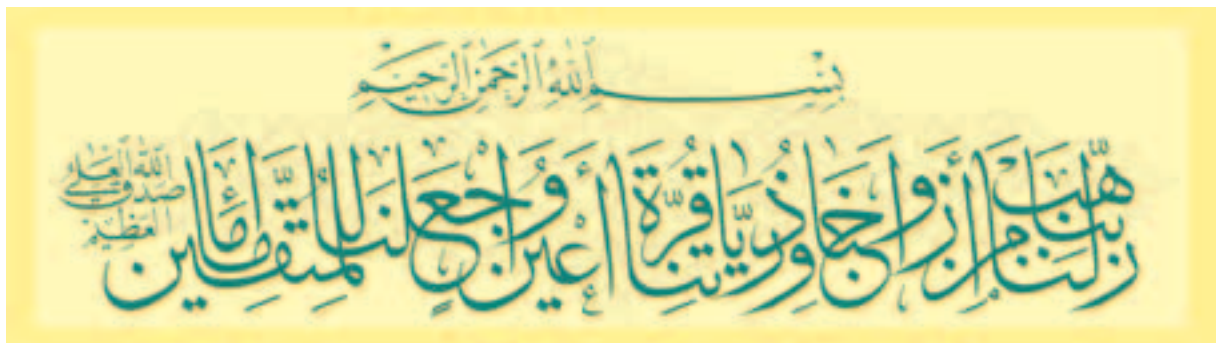 بِسْمِ ٱللَّهِ ٱلرَّحْمَٰنِ ٱلرَّحِيمِ
ربنا هب لنا من أزواجنا وذرياتنا قرة أعين واجعلنا للمتقين إماما
صدق الله العلي العظيم